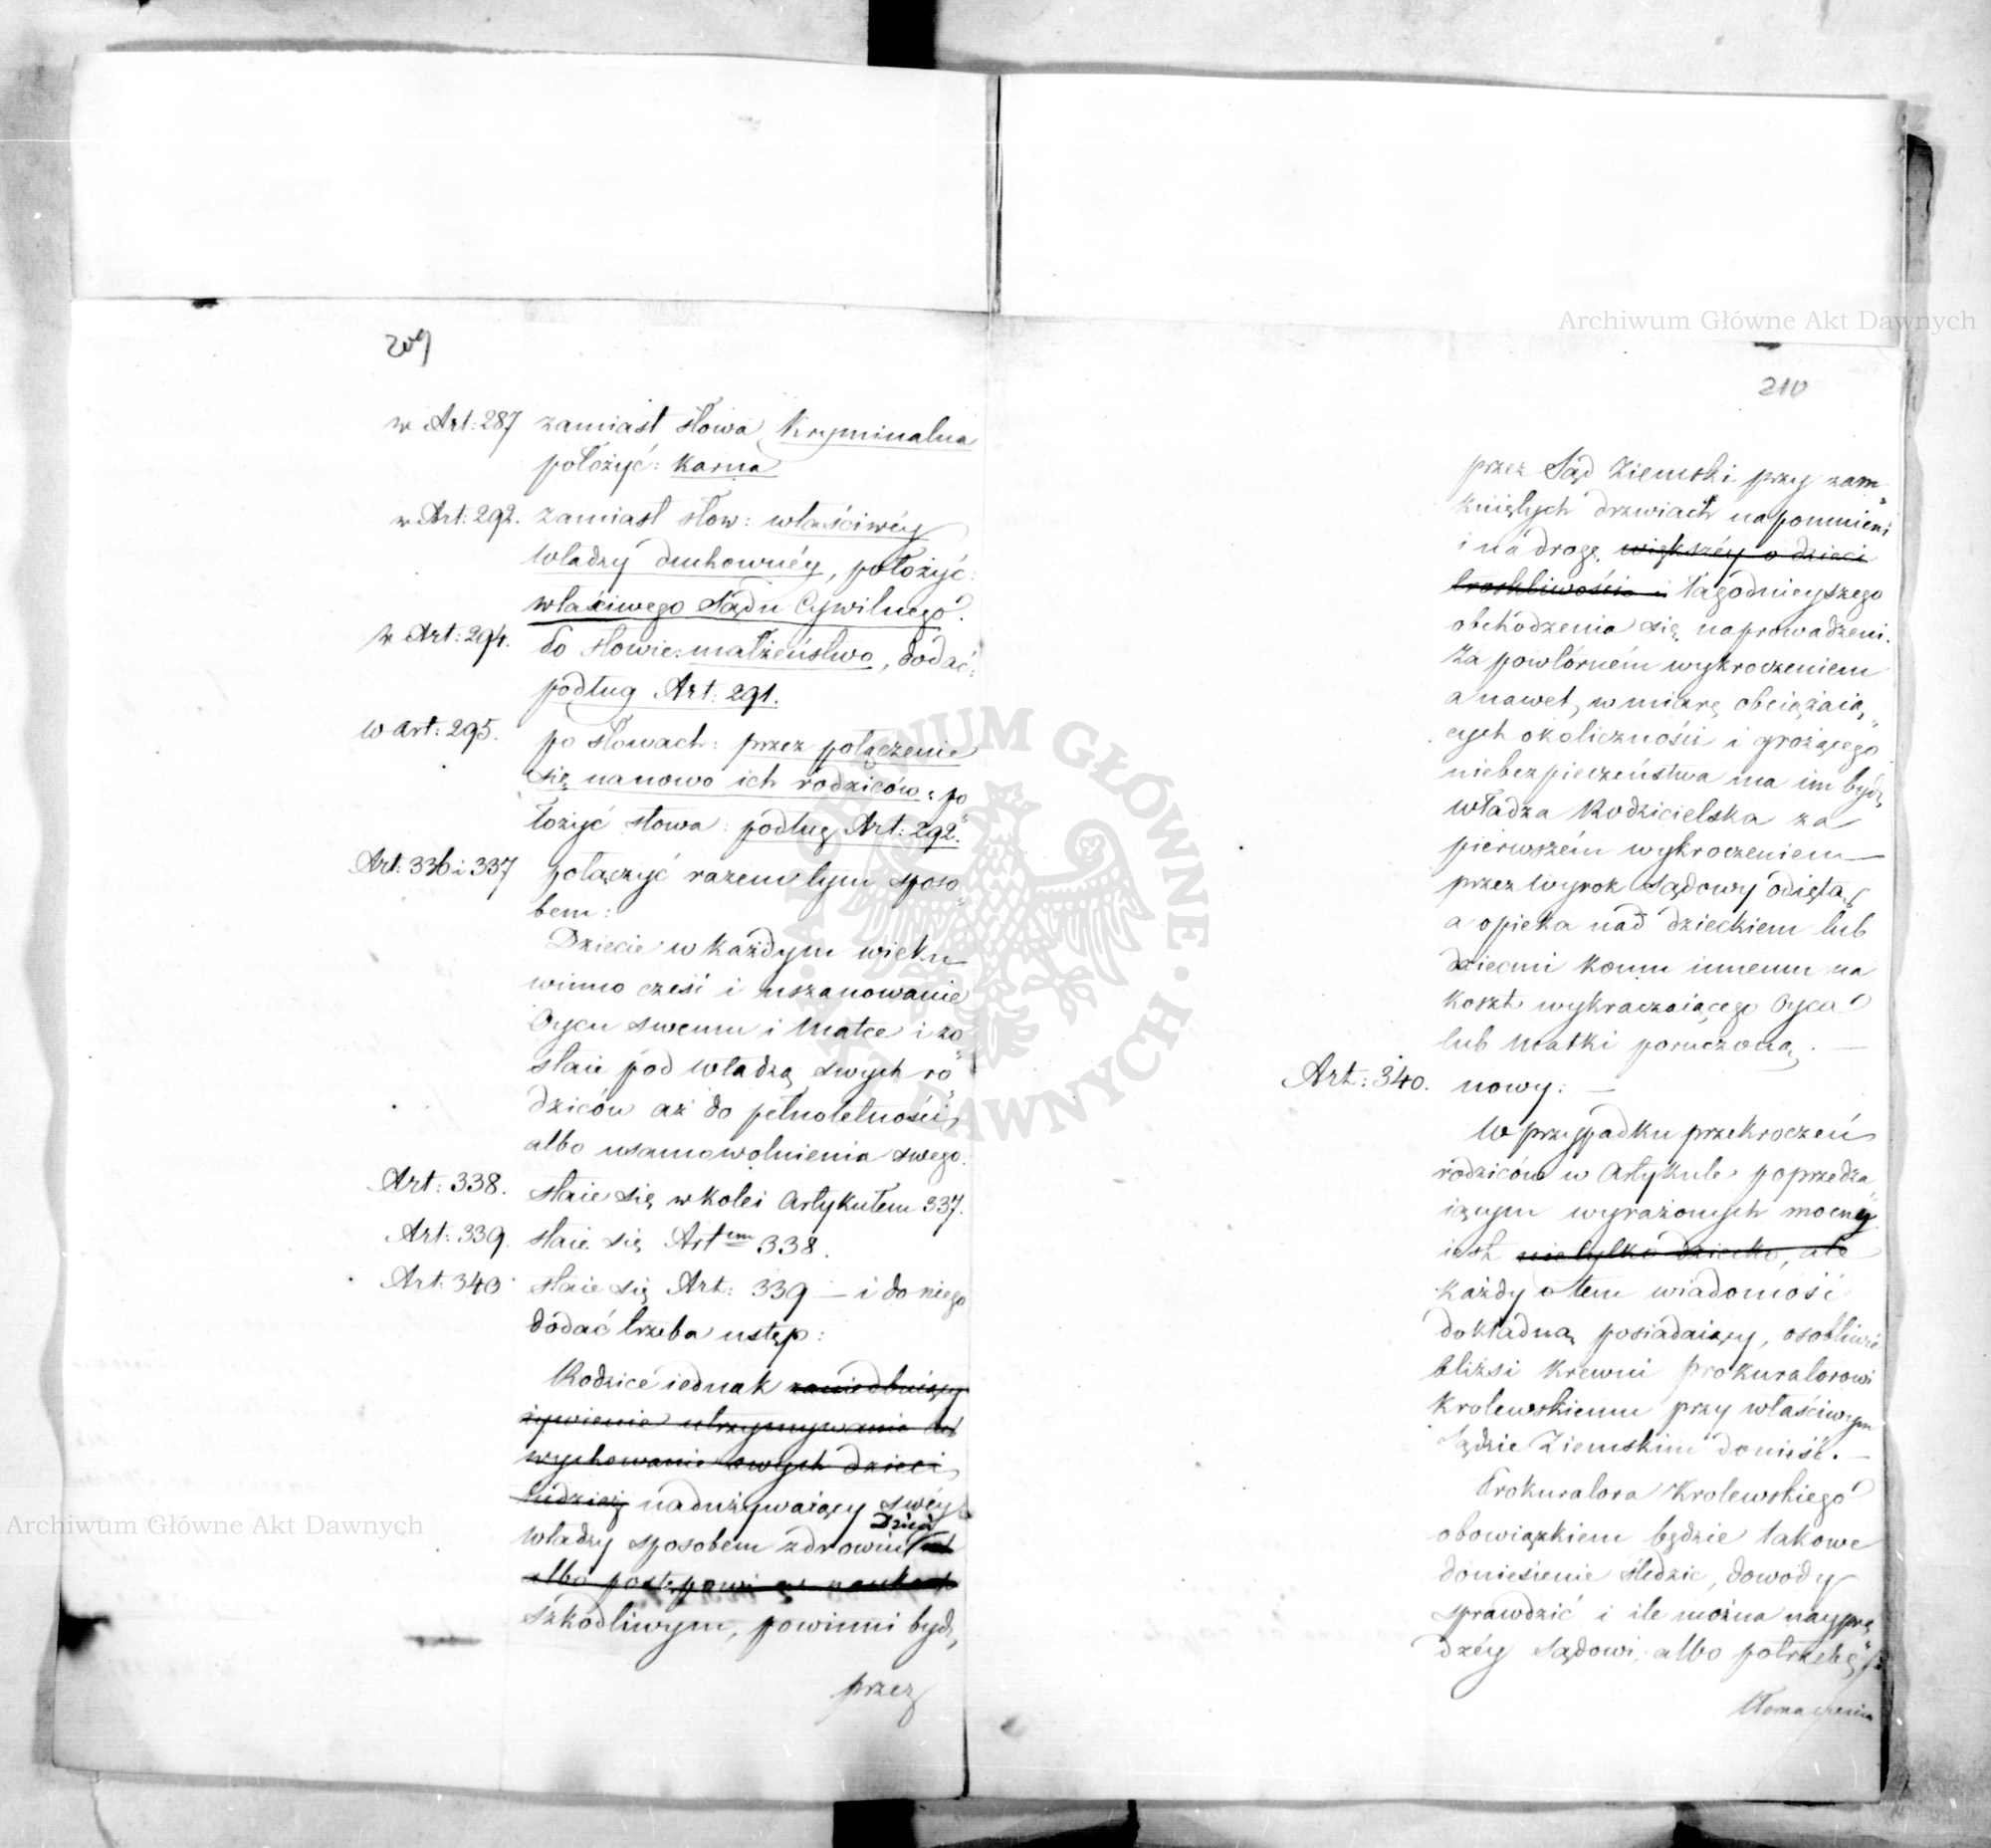 209
w Art: 287 zamiast słowa Kryminalna
położyć: karna
w Art: 292. zamiast słow: właściwéy
władzy duchownéy, położyć:
właściwego Sądu Cywilnego.
w Art: 294. do słowie: małżeństwo, dodać:
podług Art: 291.
w Art: 295. po słowach: przez połączenie
się nanowo ich rodziców: po
łożyć słowa: podług Art: 292.
Art: 336 i 337 połączyć razem tym sposo
bem:
Dziecie w każdym wieku
winno cześć i uszanowanie
Oycu swemu i Matce i zo
staie pod władzą swych ro
dziców aż do pełnoletności,
albo usamowolnienia swego.
Art: 338. staie się w kolei Artykułem 337.
Art: 339. staie się Art em 338.
Art: 340 staie się Art: 339 — i do niego
dodać trzeba ustęp:
Rodzice iednak zaniedbuiący
żywienie utrzymywanie lub
wychowanie swych dzieci,
tudzież nadużywaiący swéy
Dzieci
władzy sposobem zdrowiu
albo postępowi w naukach
szkodliwym, powinni bydź,
przez
210
przez Sąd Ziemski przy zam
kniętych drzwiach napomnieni
i na drogę większéy o dzieci
troskliwości i łagodnieyszego
obchodzenia się naprowadzeni.
Za powtórném wykroczeniem
a nawet, w miarę obciążaią
cych okoliczności i grożącego
niebezpieczeństwa ma im bydź
władza Rodzicielska za
pierwszém wykroczeniem —
przez wyrok Sądowy odiętą,
a opieka nad dzieckiem lub
dziećmi komu innemu na
koszt wykraczaiącego Oyca
lub Matki poruczoną. —
Art: 340. nowy: —
W przypadku przekroczeń
rodziców w Artykule poprzedza
iącym wyrażonych mocny
iest nie tylko dziecko, ale
każdy o tem wiadomość
dokładną posiadaiący, osobliwie
bliżsi krewni Prokuratorowi
Krolewskiemu przy właściwym
Sądzie Ziemskim donieść. —
Prokuratora Krolewskiego
obowiązkiem będzie takowe
doniesienie śledzic, dowody
sprawdzić i ile można nayprę
dzéy Sądowi, albo potrzebę
tłomaczenia
Archiwum Główne Akt Dawnych
Archiwum Główne Akt Dawnych
ARCHIWUM GŁÓWNE AKT DAWNYCH